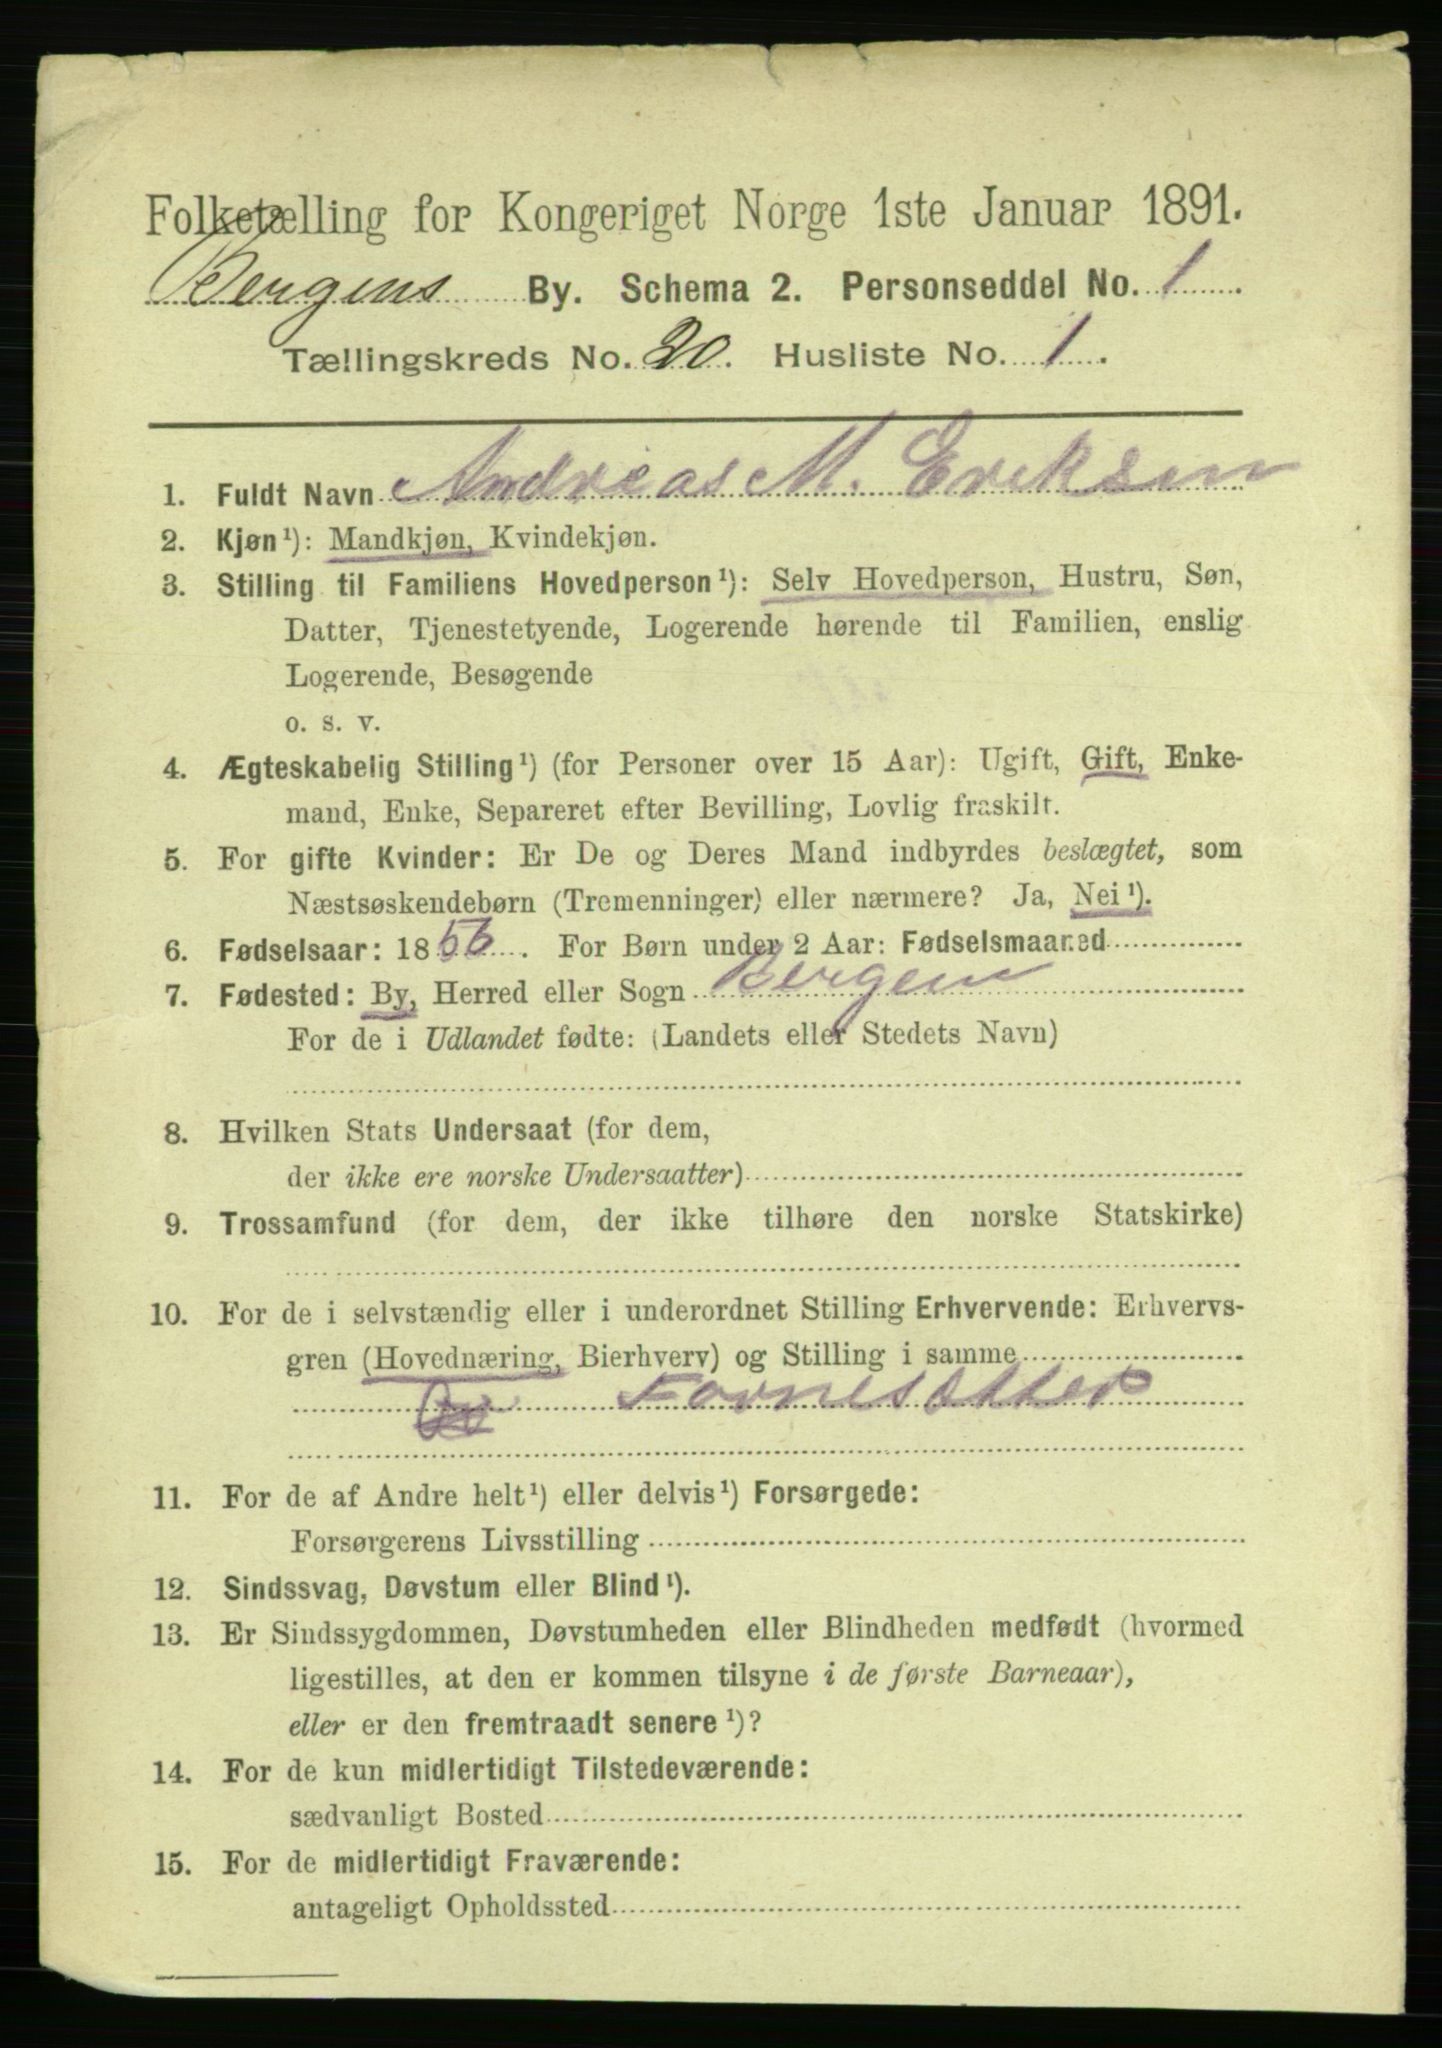 Folketælling for Kongeriget Norge 1ste Januar 1891.
Bergens By. Schema 2. Personseddel No. 1
Tællingskreds No. 20. Husliste No. 1.
1. Fuldt Navn Andreas M. Eriksen
2. Kjøn¹): Mandkjøn, Kvindekjøn.
3. Stilling til Familiens Hovedperson¹): Selv Hovedperson, Hustru, Søn,
Datter, Tjenestetyende, Logerende hørende til Familien, enslig
Logerende, Besøgende
o. s. v.
4. Ægteskabelig Stilling¹) (for Personer over 15 Aar): Ugift, Gift, Enke-
mand, Enke, Separeret efter Bevilling, Lovlig fraskilt.
5. For gifte Kvinder: Er De og Deres Mand indbyrdes beslægtet, som
Næstsøskendebørn (Tremenninger) eller nærmere? Ja, Nei¹).
6. Fødselsaar: 1856. For Børn under 2 Aar: Fødselsmaaned
7. Fødested: By, Herred eller Sogn Bergen
For de i Udlandet fødte: (Landets eller Stedets Navn)
8. Hvilken Stats Undersaat (for dem,
der ikke ere norske Undersaatter)
9. Trossamfund (for dem, der ikke tilhøre den norske Statskirke)
10. For de i selvstændig eller i underordnet Stilling Erhvervende: Erhvervs-
gren (Hovednæring, Bierhverv) og Stilling i samme
Fornesætter
11. For de af Andre helt¹) eller delvis¹) Forsørgede:
Forsørgerens Livsstilling
12. Sindssvag, Døvstum eller Blind¹).
13. Er Sindssygdommen, Døvstumheden eller Blindheden medfødt (hvormed
ligestilles, at den er kommen tilsyne i de første Barneaar),
eller er den fremtraadt senere¹)?
14. For de kun midlertidigt Tilstedeværende:
sædvanligt Bosted
15. For de midlertidigt Fraværende:
antageligt Opholdssted